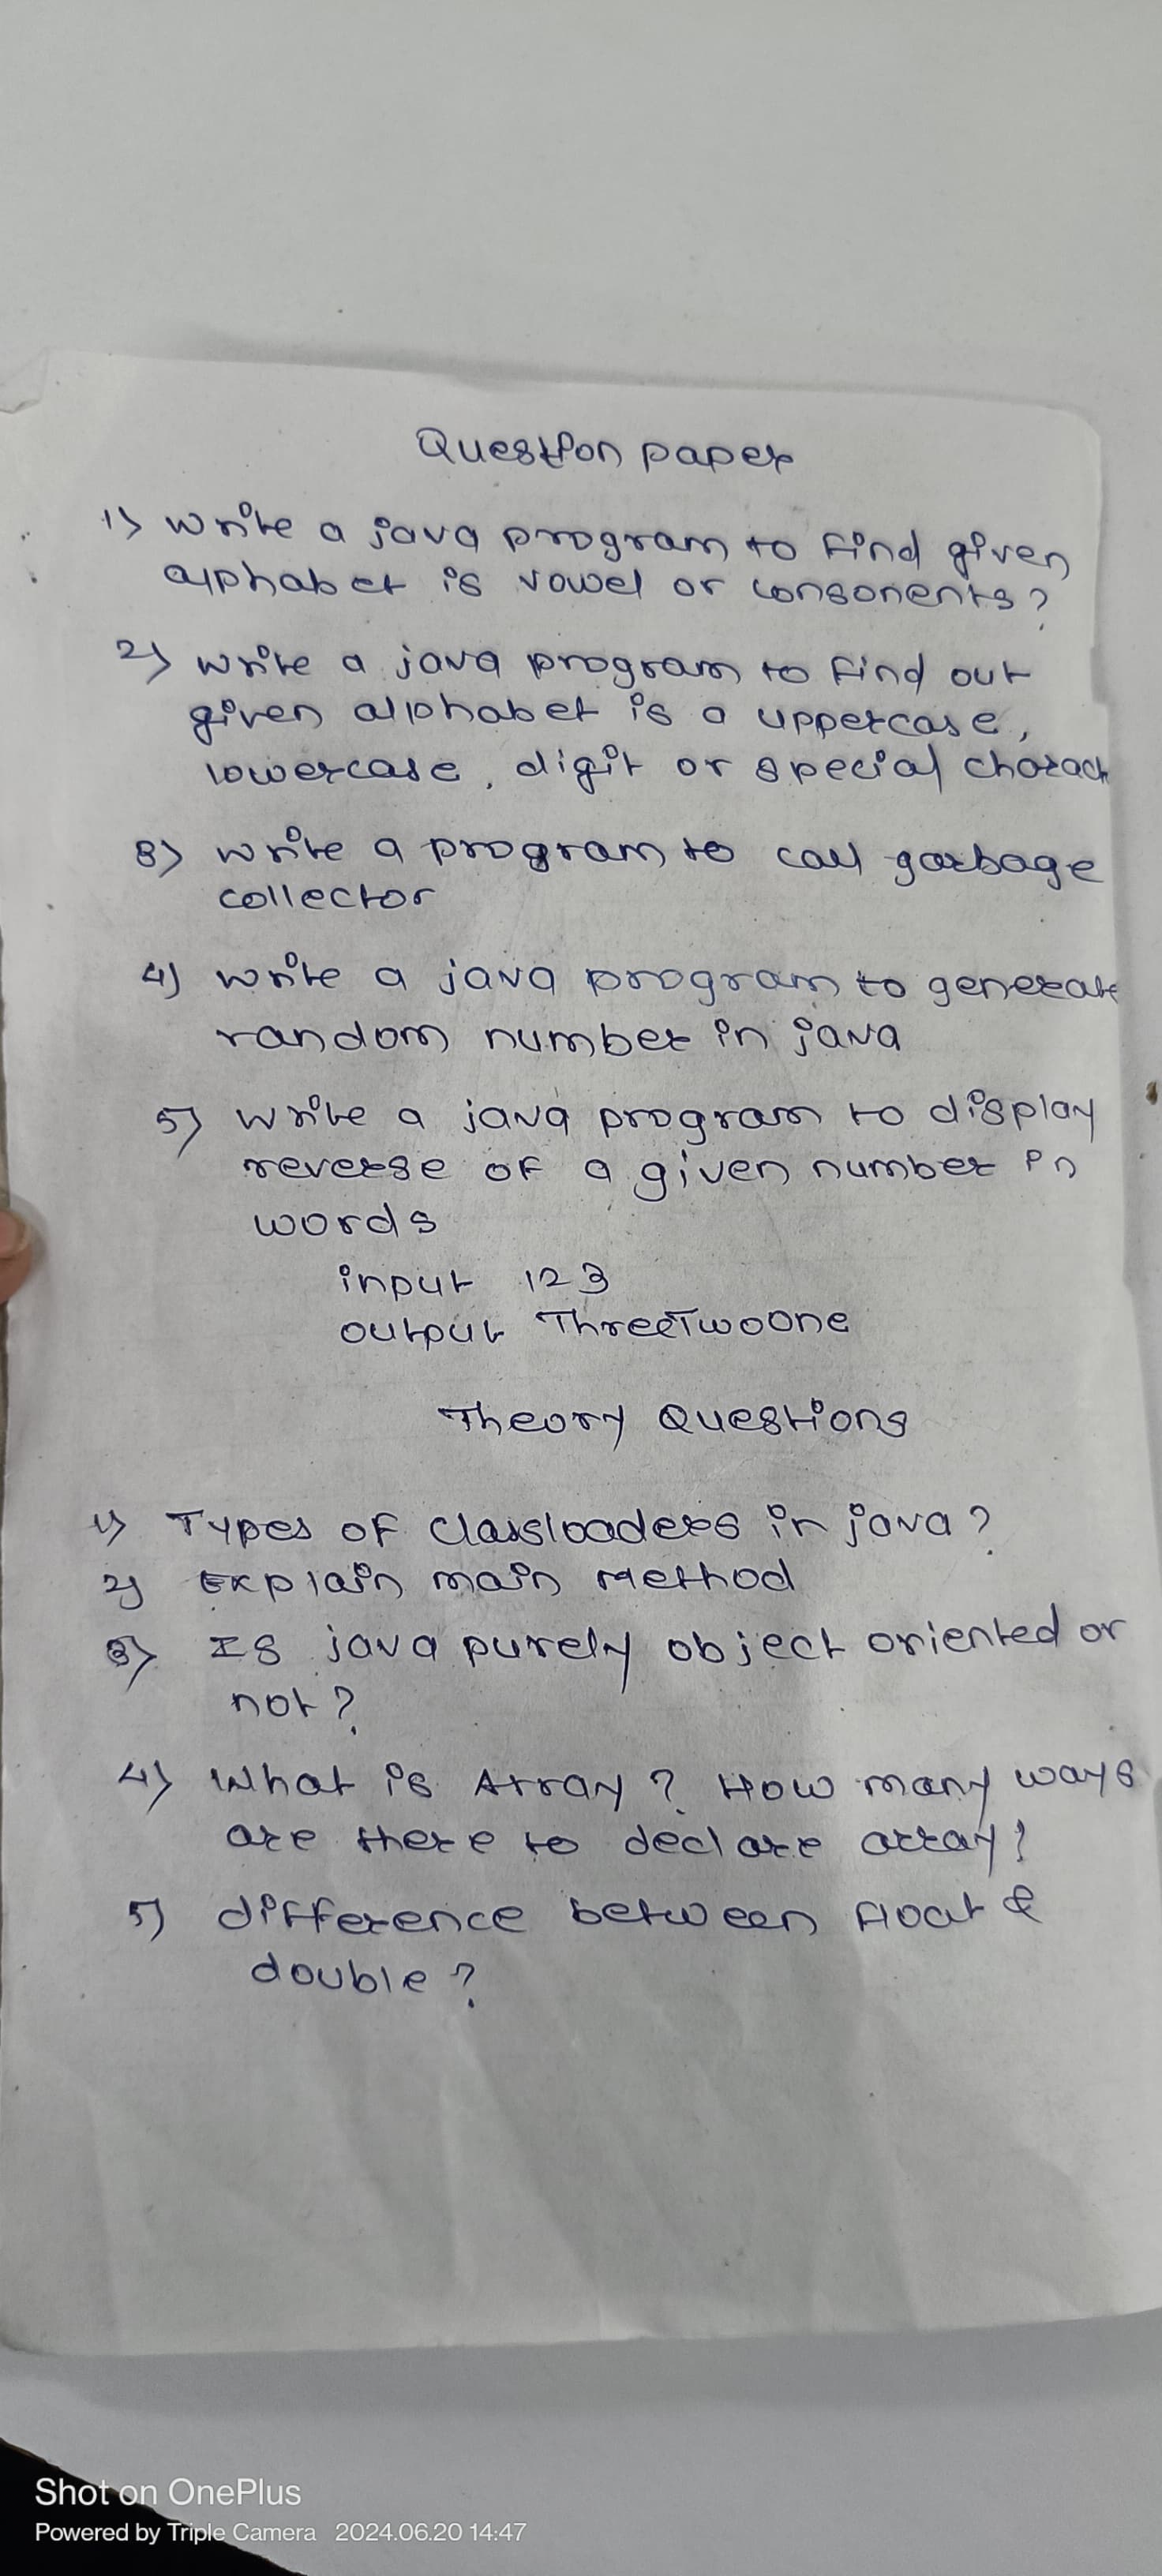 Question paper
1) write a java program to find given
alphabet is vowel or consonents?
2) write a java program to find out
given alphabet is a uppercase,
lowercase, digit or special charact
3) write a program to call garbage
collector
4) write a java program to generate
random number in java
5) write a java program to display
reverse of a given number in
words
input 123
output ThreeTwoOne
Theory Questions
1) Types of Classloaders in java?
2) Explain main method
3) Is java purely object oriented or
not?
4) What is Array? How many ways
are there to declare array?
5) difference between float &
double?
Shot on OnePlus
Powered by Triple Camera 2024.06.20 14:47